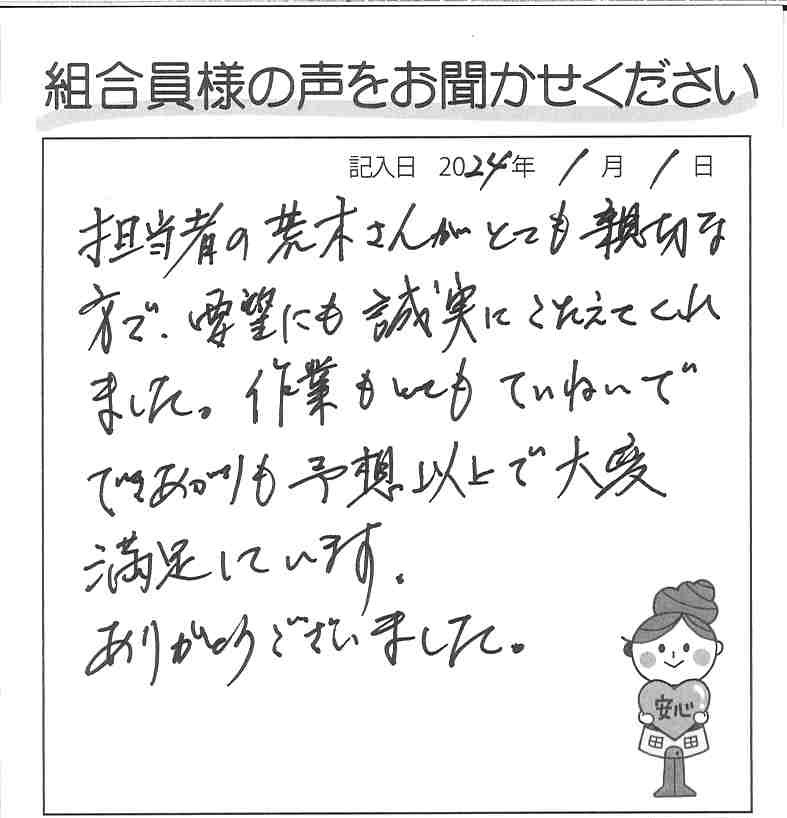 組合員様の声をお聞かせください
記入日 2024年 1月 1日
担当者の荒木さんがとても親切な
方で、要望にも誠実にこたえてくれ
ました。作業もとてもていねいで
できあがりも予想以上で大変
満足しています。
ありがとうございました。
安心